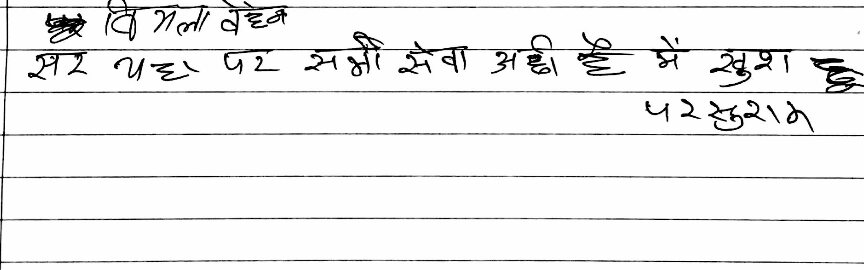 विमला वेहेन
सर यहा पर सभी सेवा अछी है में खुश हु
परसुराम